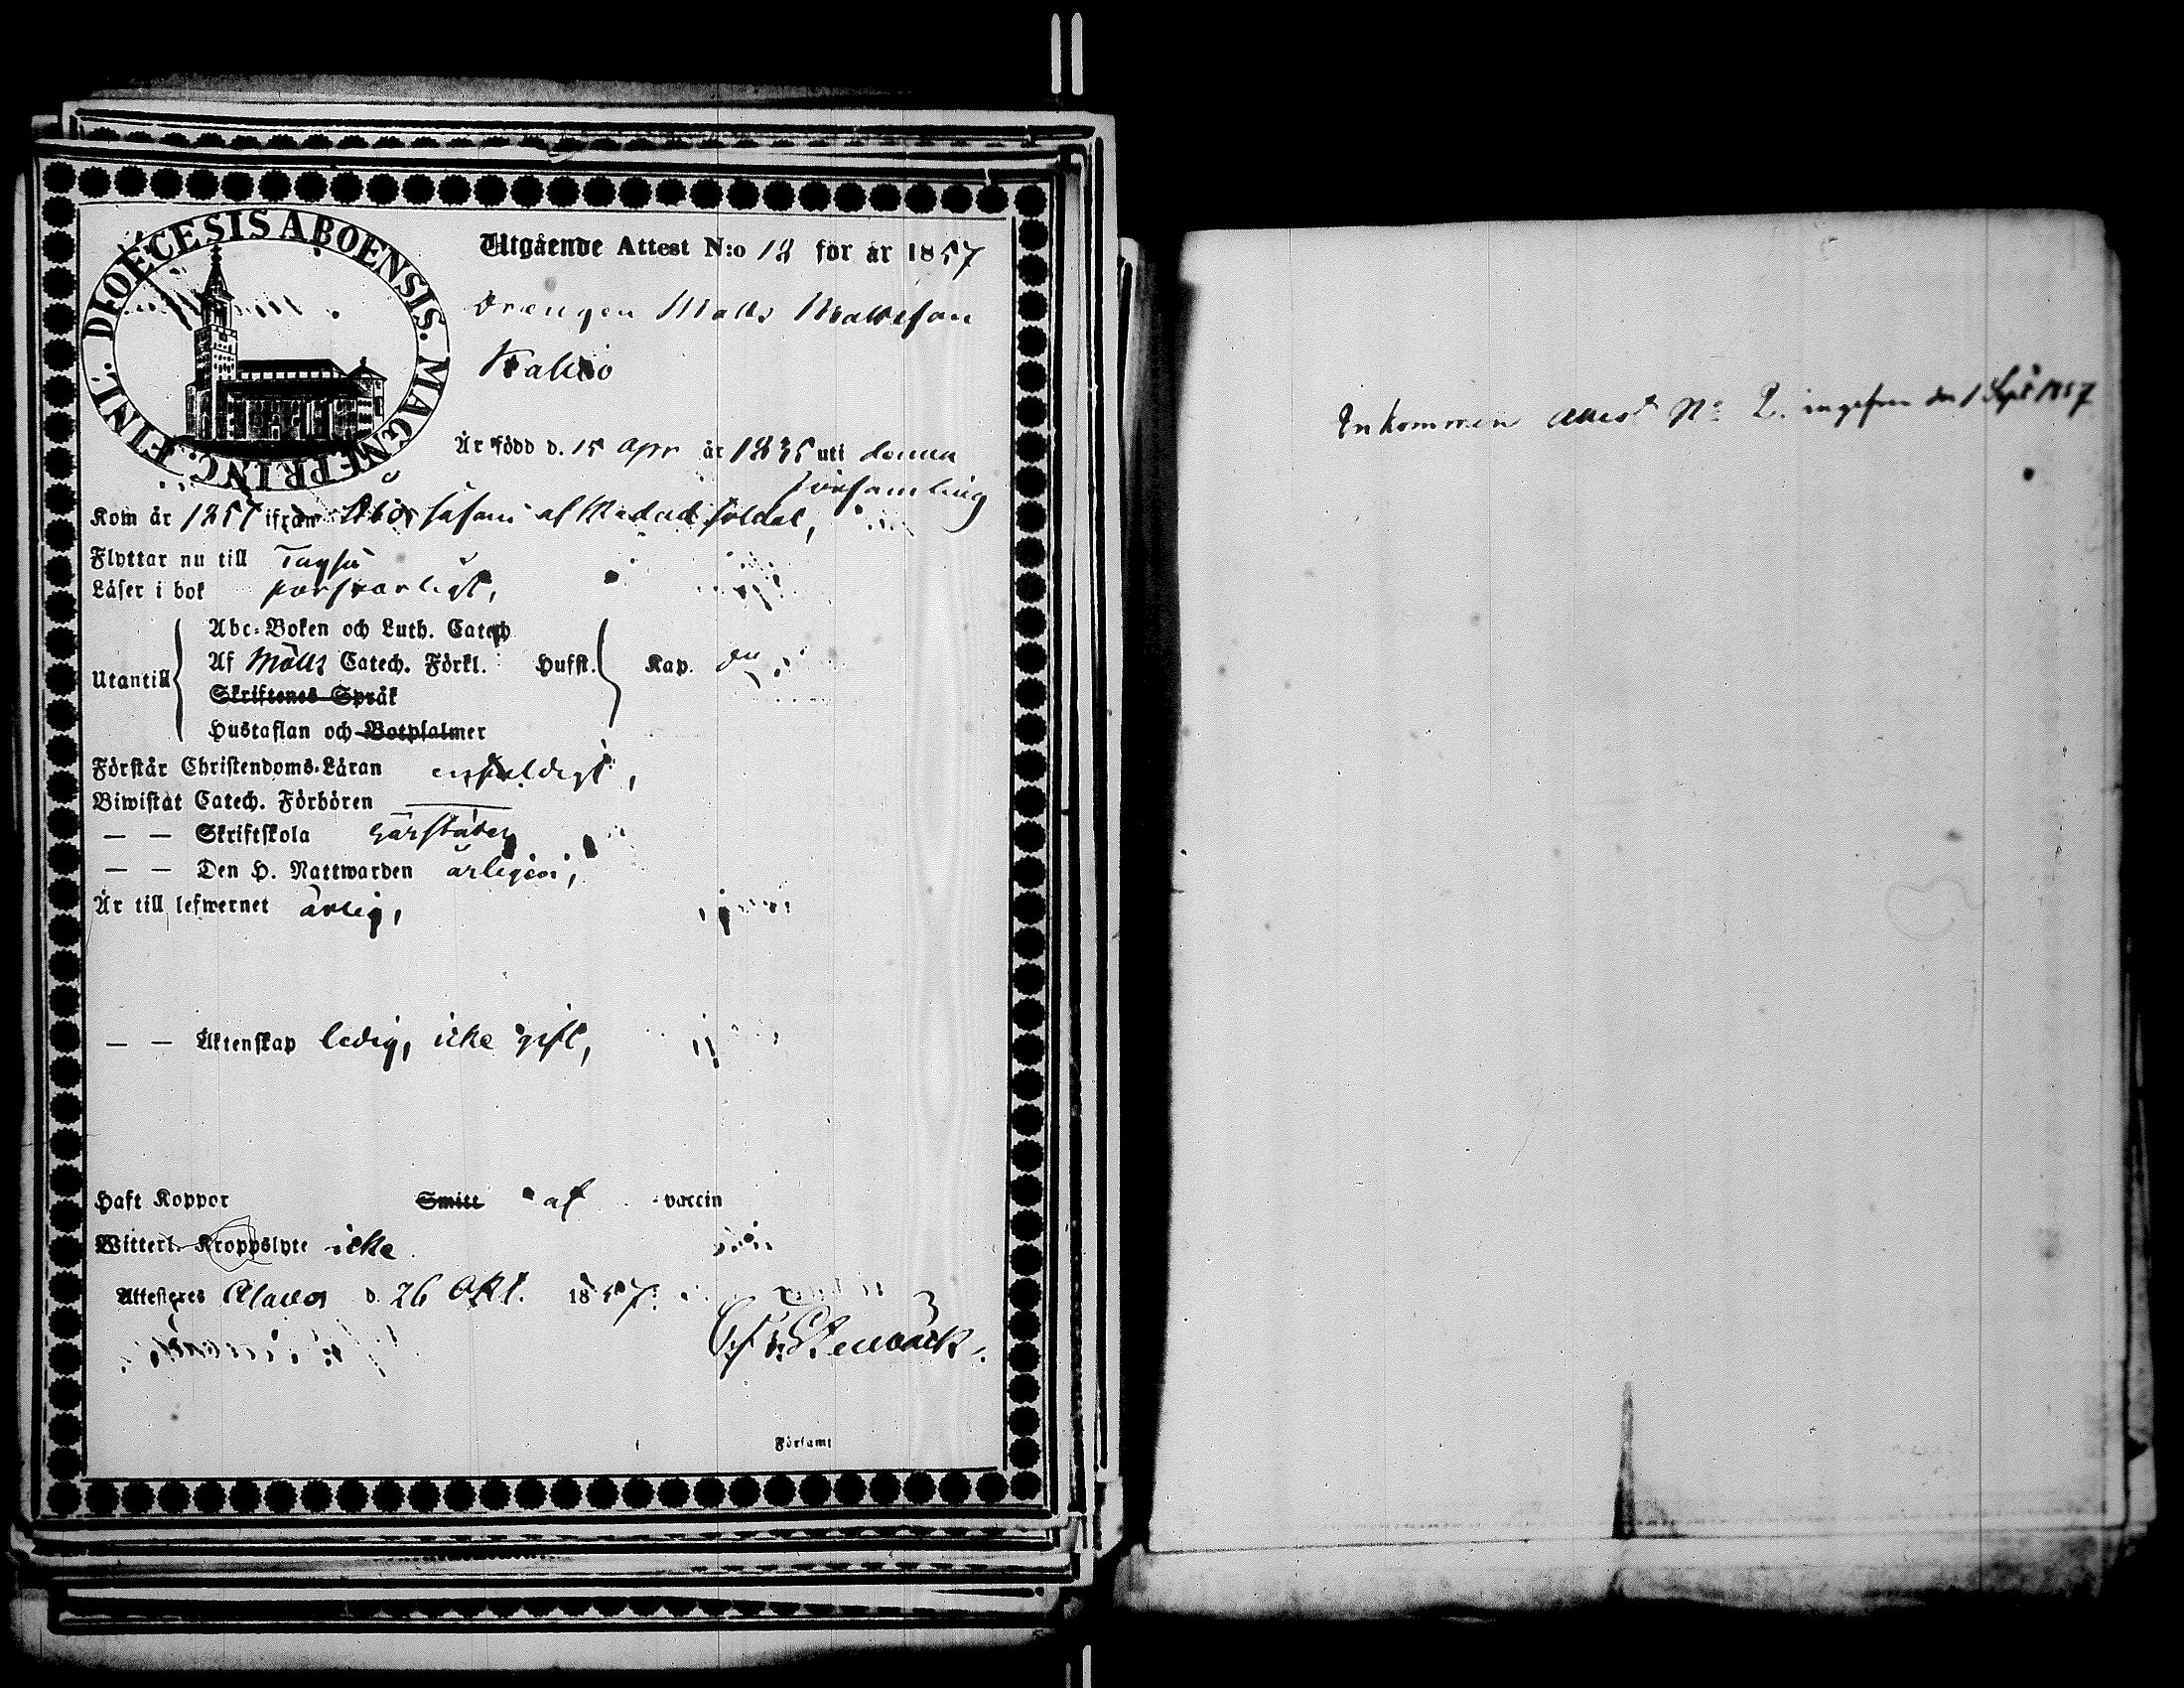 DIOECESIS ABOENSIS. MAGNI PRINC. FINL.
Utgående Attest N:o 18 för år 1857
Drängen Matts Mattsson
Kallio
Är född d. 15 Apr år 1835 uti denna
församling
Kom år 1857 ifrån Åbo såsom af soldat,
Flyttar nu till Töysä
Läser i bok försvarligt,
Utantill
Abc-Boken och Luth. Catech
Af Möllz Catech. Förkl. Hufst. Kap.
Skriftenes Språk
Hustaflan och Botpsalmer
Förstår Christendoms-Läran enfaldigt,
Biwistat Catech. Förhören —
— — Skriftskola härstädes
— — Den H. Nattwarden årligen,
Är till lefwernet ärlig,
— — Äktenskap ledig, icke gift,
Haft Koppor Smitt af vaccin
Witterl. Kroppslyte icke
Attesteres Alavo d. 26 Okt. 1857.
Stenbäck.
Församl
Inkommen attest No 2. den 1 Sept 1857